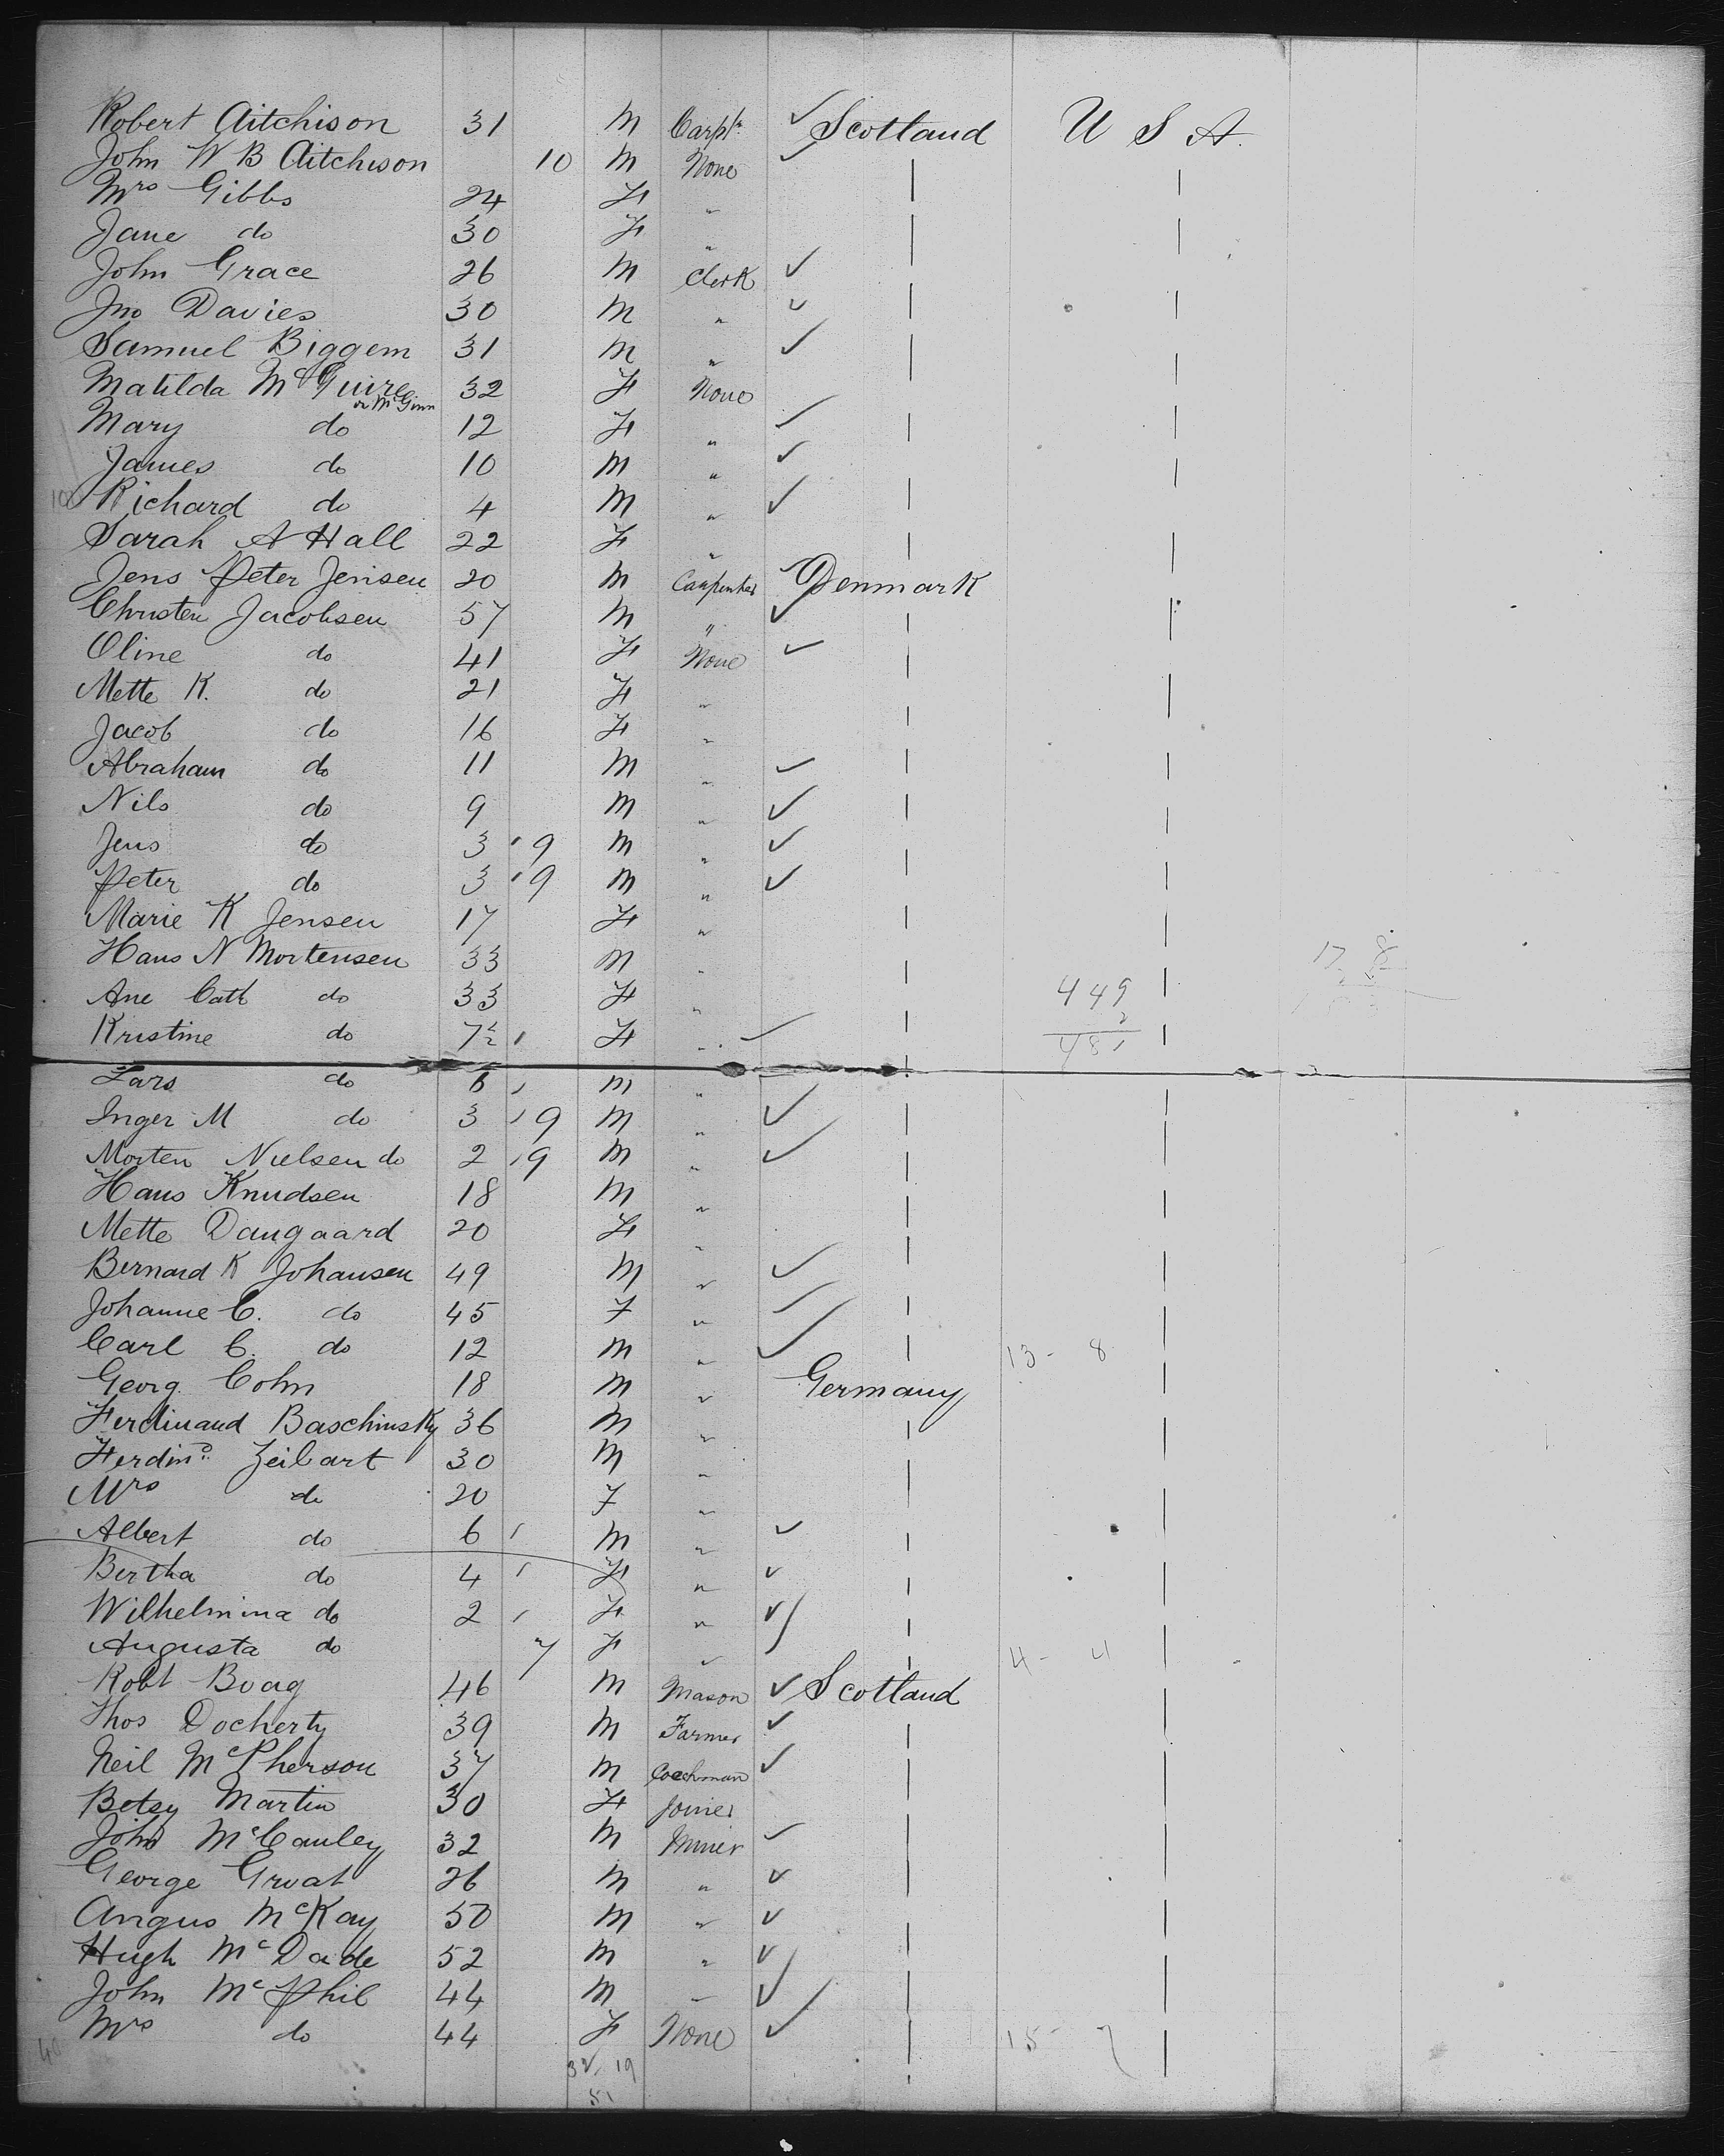 Robert Aitchison 31 M Carptr ✓ Scotland U S A.
John W B Aitchison 10 M None ✓
Mrs Gibbs 24 F "
Jane do 30 F "
John Grace 26 M Clerk ✓
Jno Davies 30 M " ✓
Samuel Biggem 31 M " ✓
Matilda McGuire 32 F None
or McGinn
Mary do 12 F " ✓
James do 10 M " ✓
Richard do 4 M " ✓
Sarah A Hall 22 F "
Jens Peter Jensen 20 M Carpenter ✓ Denmark
Christen Jacobsen 57 M " ✓
Oline do 41 F None ✓
Mette K. do 21 F "
Jacob do 16 F "
Abraham do 11 M " ✓
Nils do 9 M " ✓
Jens do 3 ' 9 M " ✓
Peter do 3 ' 9 M " ✓
Marie K Jensen 17 F "
Hans N Mortensen 33 M "
Ane Cath do 33 F " 449
Kristine do 7½ ' F " ✓
Lars do 6 ' M "
Inger M do 3 ' 9 M " ✓
Morten Nielsen do 2 ' 9 M " ✓
Hans Knudsen 18 M "
Mette Daugaard 20 F "
Bernard K Johansen 49 M " ✓
Johanne C. do 45 F " ✓
Carl C. do 12 M " ✓ 13 - 8
Georg. Cohn 18 M " Germany
Ferdinand Baschinsky 36 M "
Ferdind. Zeibart 30 M "
Mrs do 20 F "
Albert do 6 ' M " ✓
Bertha do 4 ' F " ✓
Wilhelmina do 2 ' F " ✓
Augusta do 7 F " 4 - 4
Robt Boag 46 M Mason ✓ Scotland
Thos Docherty 39 M Farmer ✓
Neil McPherson 37 M Coachman ✓
Betsy Martin 30 F Joiner
John McCauley 32 M Miner ✓
George Groat 26 M " ✓
Angus McKay 50 M " ✓
Hugh McDade 52 M " ✓
John McPhil 44 M " ✓
Mrs do 44 F None ✓ 15 - 7
32 19
51